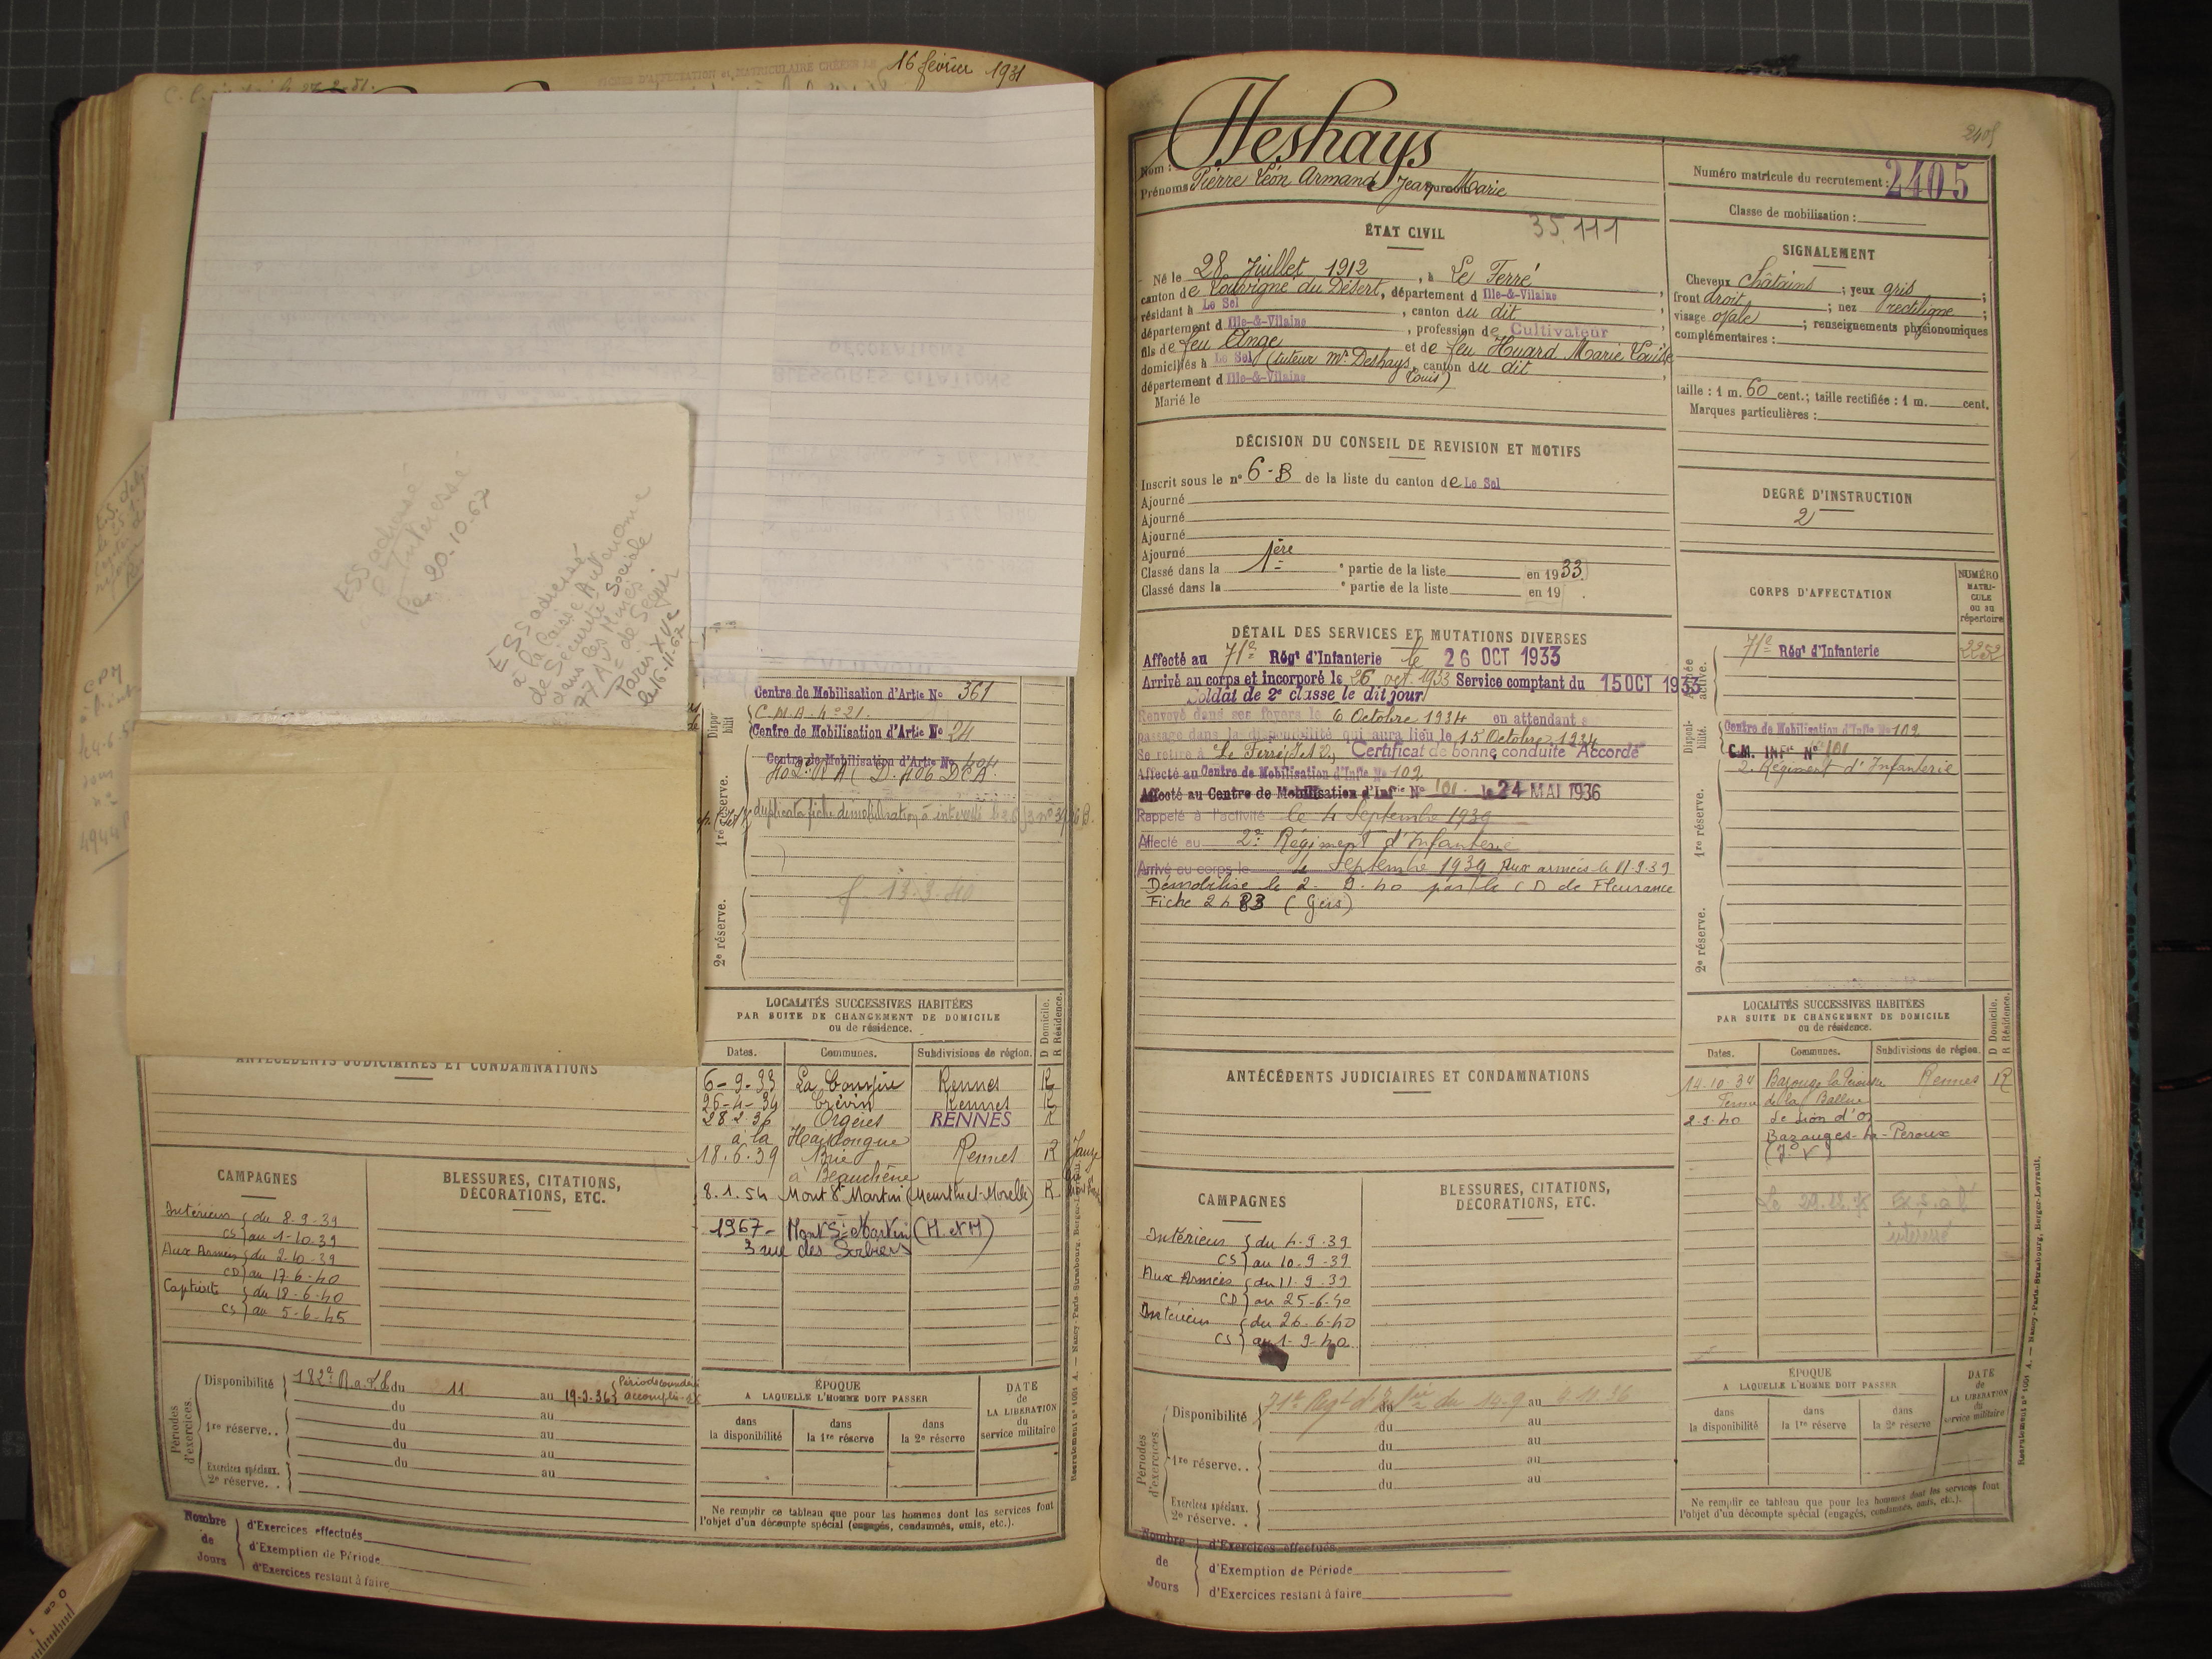 16 février 1931
ESS adressé
à l'Intéressé
le 20-10-67
ESS adressé
à la Caisse Autonome
de Sécurité Sociale
dans les Mines
77 Av de Ségur
Paris XVe
le 16-11-67
Centre de Mobilisation d'Artie No 361
C.M.A. no 21.
Centre de Mobilisation d'Artie No 24
Centre de Mobilisation d'Artie No 404
1re réserve.
duplicata fiche démobilisation à intéressé
13-3-40
2e réserve.
LOCALITÉS SUCCESSIVES HABITÉES
PAR SUITE DE CHANGEMENT DE DOMICILE
ou de résidence.
D Domicile.
R Résidence.
Dates. Communes. Subdivisions de région.
6-9-33 Rennes R
26-4-34 Crévin Rennes R
28 2 36 Orgères RENNES R
à la
18.6.39 Brie Rennes R
à Beauchêne
8.1.54 Mont St Martin (Meurthe-et-Moselle) R
1967- Mont St Martin (M et M)
3 rue des Sorbiers
ANTÉCÉDENTS JUDICIAIRES ET CONDAMNATIONS
CAMPAGNES
BLESSURES, CITATIONS,
DÉCORATIONS, ETC.
Intérieur du 8-9-39
CS au 1-10-39
Aux Armées du 2-10-39
CD au 17-6-40
Captivité du 18-6-40
CS au 5-6-45
Périodes d'exercices.
Disponibilité 182e R.a.L. du 11 au 19-3-36 accomplie
du au
1re réserve.. du au
du au
du au
Exercices spéciaux.
2e réserve. .
ÉPOQUE
A LAQUELLE L'HOMME DOIT PASSER
dans la disponibilité
dans la 1re réserve
dans la 2e réserve
DATE de LA LIBÉRATION du service militaire
Ne remplir ce tableau que pour les hommes dont les services font
l'objet d'un décompte spécial (engagés, condamnés, omis, etc.).
Nombre de Jours
d'Exercices effectués
d'Exemption de Période
d'Exercices restant à faire
2405
Nom : Deshays
Prénoms Pierre Léon Armand Jean Marie
Numéro matricule du recrutement : 2405
Classe de mobilisation :
ÉTAT CIVIL
35.111
Né le 28 Juillet 1912, à Le Ferré
canton de Louvigné du Désert, département d Ille-&-Vilaine
résidant à Le Sel, canton du dit
département d Ille-&-Vilaine, profession de Cultivateur
fils de feu Ange et de feu Huard Marie Louise
domiciliés à Le Sel (tuteur Mr. Deshays Louis), canton du dit
département d Ille-&-Vilaine
Marié le
SIGNALEMENT
Cheveux châtains ; yeux gris ;
front droit ; nez rectiligne ;
visage ovale ; renseignements physionomiques
complémentaires :
taille : 1 m. 60 cent.; taille rectifiée : 1 m. cent.
Marques particulières :
DÉCISION DU CONSEIL DE REVISION ET MOTIFS
Inscrit sous le n° 6-B de la liste du canton de Le Sel
Ajourné
Ajourné
Ajourné
Ajourné
Classé dans la 1ère e partie de la liste en 1933.
Classé dans la e partie de la liste en 19 .
DEGRÉ D'INSTRUCTION
2
CORPS D'AFFECTATION
NUMÉRO MATRICULE ou au répertoire
DÉTAIL DES SERVICES ET MUTATIONS DIVERSES
Affecté au 71e Régt d'Infanterie le 26 OCT 1933
Arrivé au corps et incorporé le 26 oct. 1933 Service comptant du 15 OCT 1933
Soldat de 2e classe le dit jour
Renvoyé dans ses foyers le 6 Octobre 1934 en attendant s
passage dans la disponibilité qui aura lieu le 15 Octobre 1934
Se retire à Le Ferré (I et V), Certificat de bonne conduite "Accordé"
Affecté au Centre de Mobilisation d'Infie No 102
Affecté au Centre de Mobilisation d'Infrie No 101 le 24 MAI 1936
Rappelé à l'activité le 4 Septembre 1939
Affecté au 2e Régiment d'Infanterie
Arrivé au corps le 4 Septembre 1939 Aux armées le 11.9.39
Démobilisé le 2. 9. 40 par le CD de Fleurance
Fiche 2483 (Gers)
71e Régt d'Infanterie 2252
Centre de Mobilisation d'Infie No 102
C.M. INFie No 101
2e Régiment d'Infanterie
1re réserve.
2e réserve.
ANTÉCÉDENTS JUDICIAIRES ET CONDAMNATIONS
LOCALITÉS SUCCESSIVES HABITÉES
PAR SUITE DE CHANGEMENT DE DOMICILE
ou de résidence.
D Domicile.
R Résidence.
Dates. Communes. Subdivisions de région.
14.10.34 Bazouge la Pérouse Rennes R
Ferme de la Ballue
2-9-40 Le Lion d'Or
Bazouges-la-Peroux
(I et V)
CAMPAGNES
BLESSURES, CITATIONS,
DÉCORATIONS, ETC.
Intérieur du 4-9-39
CS au 10-9-39
Aux Armées du 11-9-39
CD au 25-6-40
Intérieur du 26-6-40
CS au 1-9-40
Périodes d'exercices.
Disponibilité 71e Régt d'Infie du 19-9 au
du au
1re réserve.. du au
du au
du au
Exercices spéciaux.
2e réserve. .
ÉPOQUE
A LAQUELLE L'HOMME DOIT PASSER
dans la disponibilité
dans la 1re réserve
dans la 2e réserve
DATE de LA LIBÉRATION du service militaire
Ne remplir ce tableau que pour les hommes dont les services font
l'objet d'un décompte spécial (engagés, condamnés, omis, etc.).
Nombre de Jours
d'Exercices effectués
d'Exemption de Période
d'Exercices restant à faire